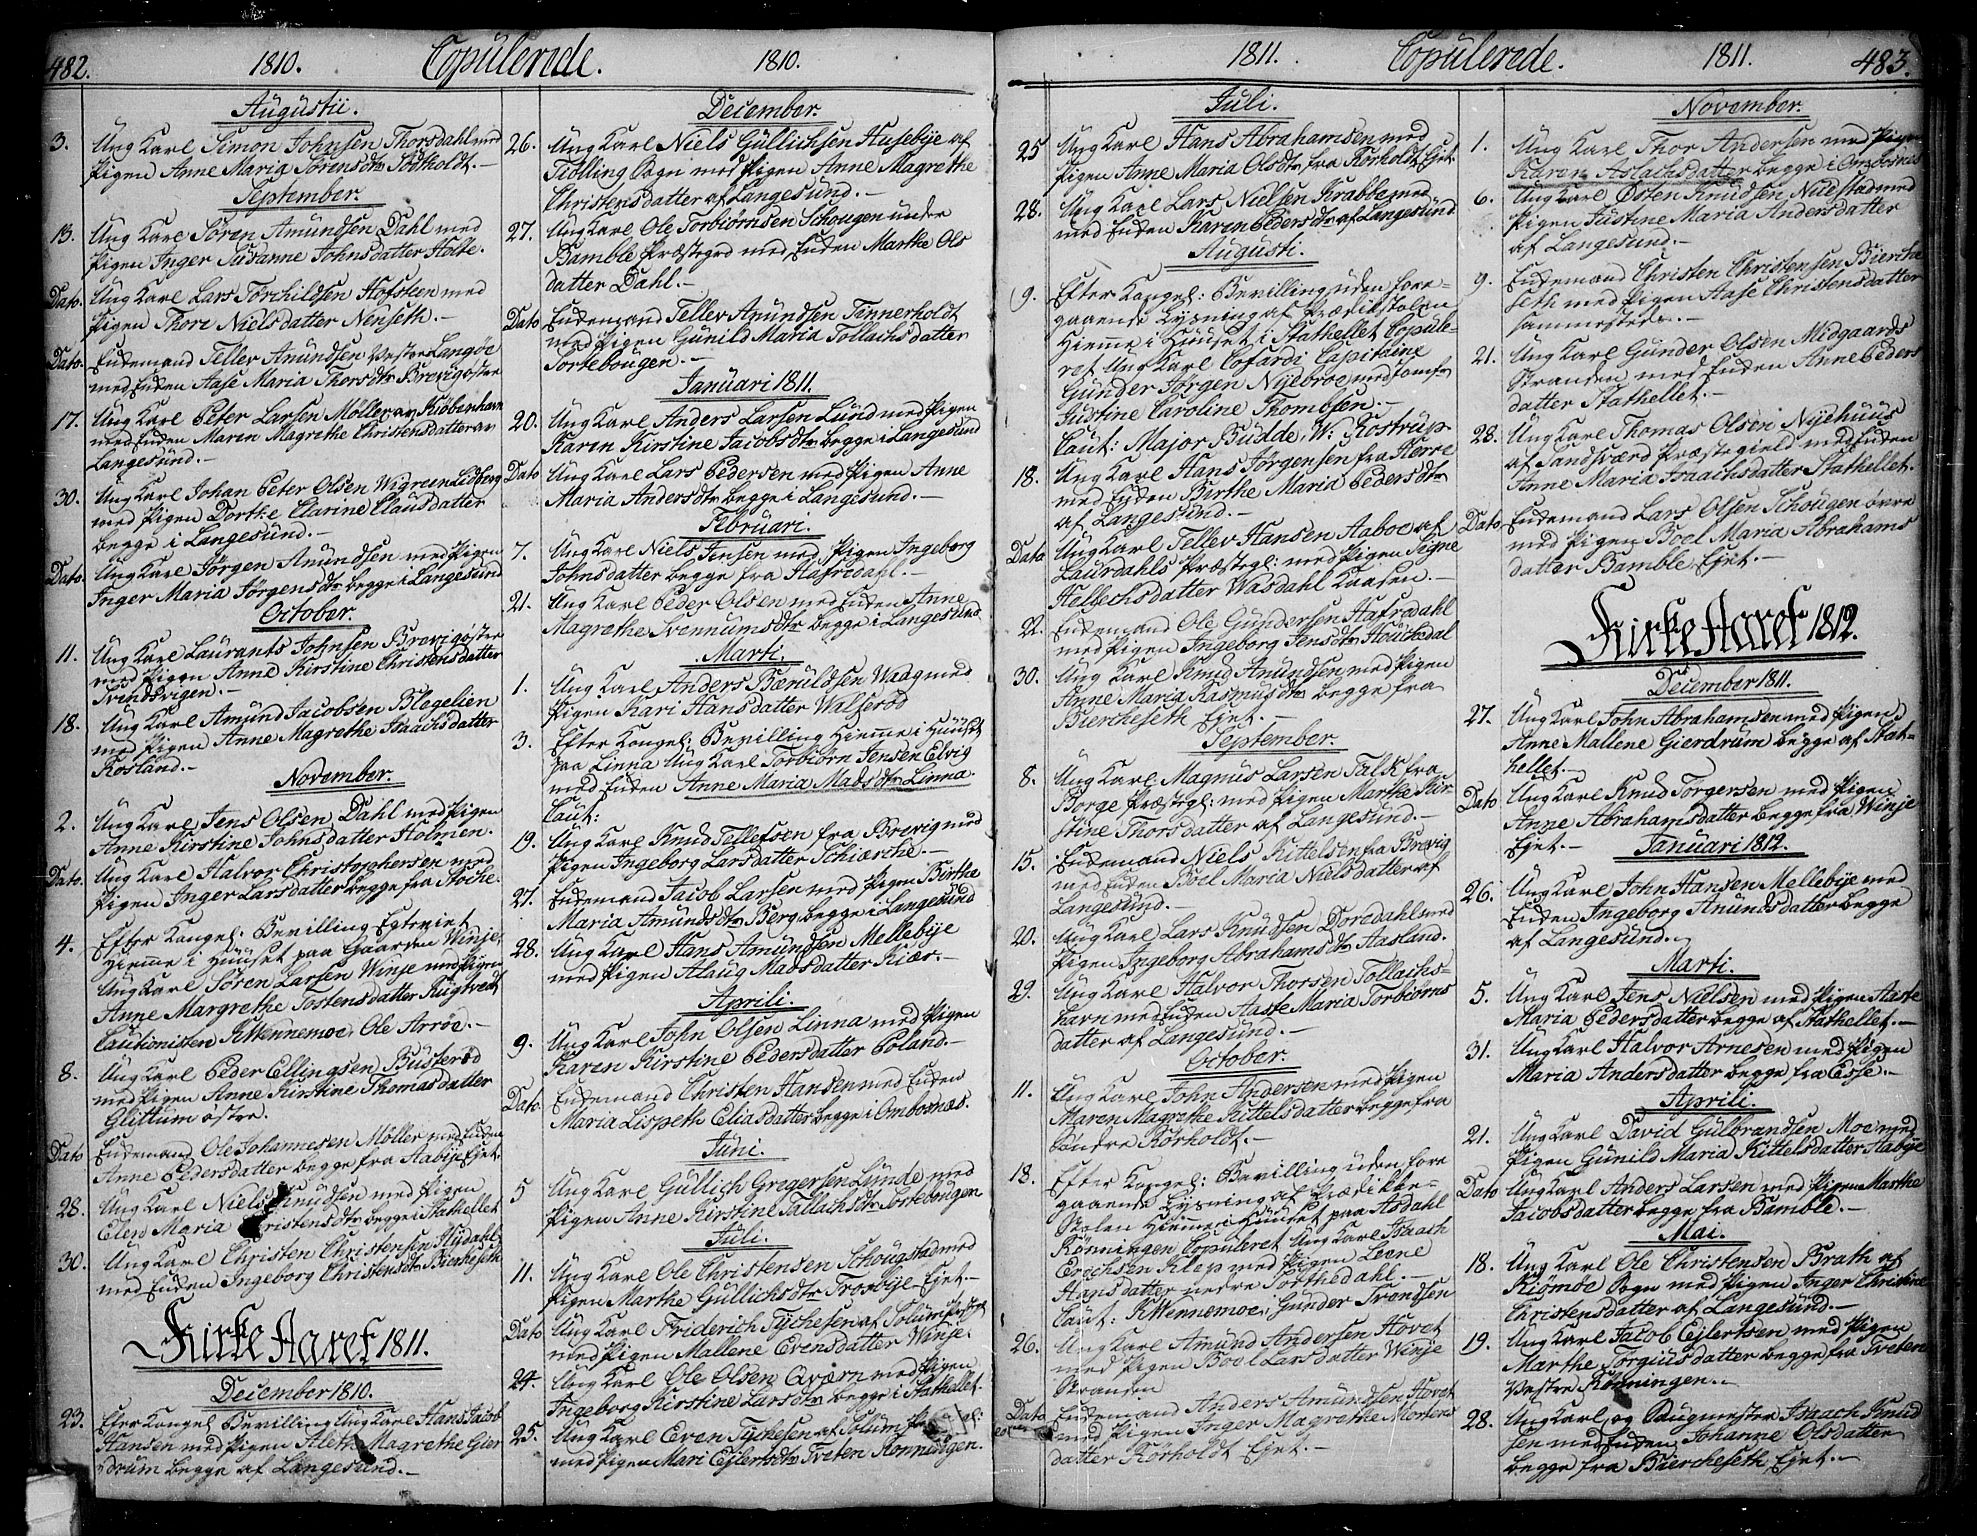 482. 1810. Copulerede. 1810.
Augustii.
3. Ung Karl Simon Johnsen Thorsdahl med
Pigen Anne Maria Sörensdtr Södtholdt.
September.
13. Ung Karl Sören Amundsen Dahl med
Pigen Inger Susanne Johnsdatter Holte.
Dato. Ung Karl Lars Torchildsen Hofsteen med
Pigen Thore Nielsdatter Nenseth.
Dato. Enkemand Teller Amundsen Vestre Langöe
med Enken Aase Maria Thorsdtr Brevigöster
17. Ung Karl Peter Larsen Möller av Kiöbenhavn
med Enken Maren Magrethe Christensdatter av
Langesund.
30. Ung Karl Johan Peter Olsen Wigreen Lidberg
med Pigen Dorthe Clarine Clausdatter
begge i Langesund.
Dato. Ung Karl Jörgen Amundsen med Pigen
Inger Maria Jörgensdtr begge i Langesund
October.
11. Ung Karl Laurants Johnsen Brevigöster
med Pigen Anne Kirstine Christensdatter
Svindsvigen.
18. Ung Karl Amund Jacobsen Blegelien
med Pigen Anne Magrethe Isaachsdatter
Rosland.
November.
2. Ung Karl Jens Olsen Dahl med Pigen
Anne Kirstine Johnsdatter Holmen.
Dato. Ung Karl Halvor Christophersen med
Pigen Inger Larsdatter begge fra Stoche.
4. Efter Kongel: Bevilling Egteviet
hjemme i Huuset paa Gaarden Winje,
Ung Karl Sören Larsen Winje med Pigen
Anne Margrethe Tostensdatter Rugtvedt
Cautionisten K Wennemoe, Ole Arröe.
8. Ung Karl Peder Ellingsen Busteröd
med Pigen Anne Kirstine Thomasdatter
Glittum östre.
Dato Enkemand Ole Johannesen Möller med Enken
Anne Pedersdatter begge fra Aabye Ejet.
28. Ung Karl Niels Knudsen med Pigen
Elen Maria Christensdtr begge i Stathellet
30. Ung Karl Christen Christensen Flydahl
med Enken Ingeborg Christensdtr Bierkeseth
Kirke Aaret 1811.
December 1810.
23. Efter Kongel Bevilling Ung Karl Hans Jacob
Hansen med Pigen Aleth Magrethe Gier
drum begge af Langesund.
December.
26. Ung Karl Niels Gullichsen Husebye af
Tiölling Sogn med Pigen Anne Magrethe
Christensdatter af Langesund.
27. Ung Karl Ole Torbiörnsen Schougen under
Bamble Præstegrd med Enken Marthe Ols
datter Dahl.
Dato Enkemand Teller Amundsen Tennerholdt
med Pigen Gunild Maria Tollachsdatter
Sortebougen.
Januari 1811.
20. Ung Karl Anders Larsen Lund med Pigen
Karen Kirstine Jacobsdtr begge i Langesund
Dato Ung Karl Lars Pedersen med Pigen Anne
Maria Andersdtr begge i Langesund.
Februari.
7. Ung Karl Niels Jensen med Pigen Ingeborg
Johnsdatter begge fra Hafredahl.
21. Ung Karl Peder Olsen med Enken Anne
Magrethe Svennumsdtr begge i Langesund
Marti.
1. Ung Karl Anders Bæruldsen Waag med
Pigen Kari Hansdatter Walleröd
3. Efter Kongel: Bevilling Hiemme i Huuset
paa Linna Ung Karl Torbiörn Jensen Elvig
med Enken Anne Maria Madsdtr Linna.
Caut:
19. Ung Karl Knud Tellefsen fra Brevig med
Pigen Ingeborg Larsdatter Schiærche.
27. Enkemand Jacob Larsen med Pigen Birthe
Maria Amundsdtr Berg begge i Langesund
28. Ung Karl Hans Amundsen Mellebye
med Pigen Aslaug Madsdatter Kiær.
Aprili.
9. Ung Karl John Olsen Linna med Pigen
Karen Kirstine Pedersdatter Poland.
Dato. Enkemand Christen Hansen med Enken
Maria Lispeth Eliasdatter begge i Ombosnæs.
Juni.
5 Ung Karl Gullich Gregersen Lunde med
Pigen Anne Kirstine Tallachsdtr Sortebougen
Juli.
11. Ung Karl Ole Christensen Schougstad med
Pigen Marthe Gullichsdtr Trosbye Ejet
Dato Ung Karl Friderich Tychesen af Solum Præstgl
med Pigen Mallene Evensdatter Winje.
24. Ung Karl Ole Olsen Qværn med Pigen
Ingeborg Kirstine Larsdtr begge i Stathellet.
25. Ung Karl Even Tychesen af Solum
med Pigen Mari Ejlertsdtr Tveten Rönningen.
1811. Copulerede. 1811. 483.
Juli.
25 Ung Karl Hans Abrahamsen med
Pigen Anne Maria Olsdtr fra Rörholdt Ejet.
28. Ung Karl Lars Nielsen Krabbe med
med Enken Karen Pedersdtr af Langesund.
Augusti.
9. Efter Kongel: Bevilling uden fore-
gaaende Lysning af Prædikestolen
Hjemme i Huuset i Stathellet Copule-
ret Ung Karl Cofardi Capitaine
Gunder Jörgen Nyebroe med Jomfr
Justine Caroline Thombsen.
Caut: Major Budde, W. Rostrup
18. Ung Karl Hans Jörgensen fra Herre
med Enken Birthe Maria Pedersdtr
af Langesund.
Dato Ung Karl Tellev Hansen Aaboe af
Laurdahls Præstegl: med Pigen Signe
Hellechsdatter Wasdahl Kaasen.
22. Enkemand Ole Gundersen Hafredahl
med Pigen Ingeborg Jensdtr Houkedal
30. Ung Karl Knud Amundsen med Pigen
Anne Maria Rasmusdtr begge fra
Biercheseth Ejet.
September.
8. Ung Karl Magnus Larsen Talk fra
Borge Præstegl: med Pigen Martha Kir-
stine Thorsdatter af Langesund.
15. Enkemand Niels Kittelsen fra Brevig
med Enken Boel Maria Nielsdatter af
Langesund.
20. Ung Karl Lars Knudsen Dordahl med
Pigen Ingeborg Abrahamsdtr Aasland.
29. Ung Karl Halvor Thorsen Tollachs-
havn med Enken Aaste Maria Torbiörns
datter af Langesund.
October.
11. Ung Karl John Andersen med Pigen
Maren Magrethe Kittelsdatter begge fra
Söndre Rörholdt.
18. Efter Kongel: Bevilling uden fore
gaaende Lysning af Prædikke-
Stolen Hiemme i Huuset paa Asdahl
Rönningen Copuleret Ung Karl Isaach
Erichsen Klep med Pigen Leene
Hansdatter nedre Totthedahl.
Caut: K Wennemoe, Gunder Trondsen
26. Ung Karl Amund Andersen Hovet
med Pigen Boel Larsdatter Winje
Stranden
Dato Enkemand Anders Amundsen Hovet
med Pigen Inger Magrethe Mortens
datter Rörholdt Ejet.
November.
1. Ung Karl Thor Andersen med Pigen
Karen Aslaksdatter begge i Ombosnes
6. Ung Karl Östen Knudsen Nuestad med
Pigen Justine Maria Andersdatter
af Langesund.
9. Enkemand Christen Christensen Bierche
seth med Pigen Aase Christensdatter
sammestedz.
21. Ung Karl Gunder Olsen Midgaards
Stranden med Enken Anne Peders
datter Stathellet.
28. Ung Karl Thomas Olsen Nyehuus
af Sandsværd Præstegield med Enken
Anne Maria Isaachsdatter Stathellet.
Dato Enkemand Lars Olsen Schougen övre
med Pigen Boel Maria Abrahams
datter Bamble Ejet.
Kirke Aaret 1812.
December 1811.
27. Ung Karl John Abrahamsen med Pigen
Anne Mallene Gierdrum begge af Stat-
hellet.
Dato Ung Karl Knud Törgersen med Pigen
Anne Abrahamsdatter begge fra Winje
Ejet.
Januari 1812.
26. Ung Karl John Hansen Mellebye med
Enken Ingeborg Amundsdatter begge
af Langesund.
Marti.
5. Ung Karl Jens Nielsen med Pigen Aaste
Maria Pedersdatter begge af Stathellet.
31. Ung Karl Halvor Arnesen med Pigen
Maria Andersdatter begge fra Esse.
Aprili.
21. Ung Karl David Gulbrandsen Moe med
Pigen Gunild Maria Kittelsdatter Aabye
Dato Ung Karl Anders Larsen med Pigen Marthe
Jacobsdatter begge fra Bamble.
Mai.
18. Ung Karl Ole Christensen Brath af
Kiömöe Sogn med Pigen Inger Christine
Christensdatter af Langesund.
19. Ung Karl Jacob Ejlertsen med Pigen
Marthe Törgiusdatter begge fra Tveten
Vestre Rönningen.
28. Ung Karl og Bugmester Isaach Knud
sen med Enken Johanne Olsdatter
begge fra Biercheseth Ejet.